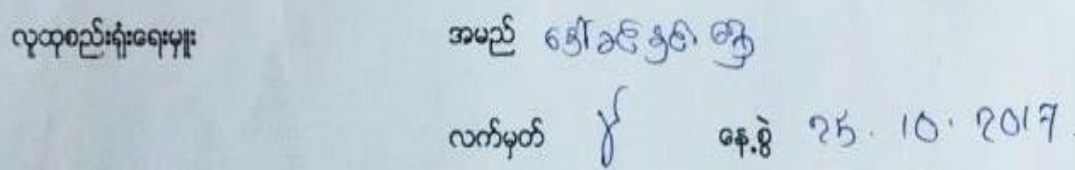 လူထုစည်းရုံးရေးမှူး အမည် ဒေါ်ခင်နှင်း
လက်မှတ် နေ့စွဲ 25.10.2017.